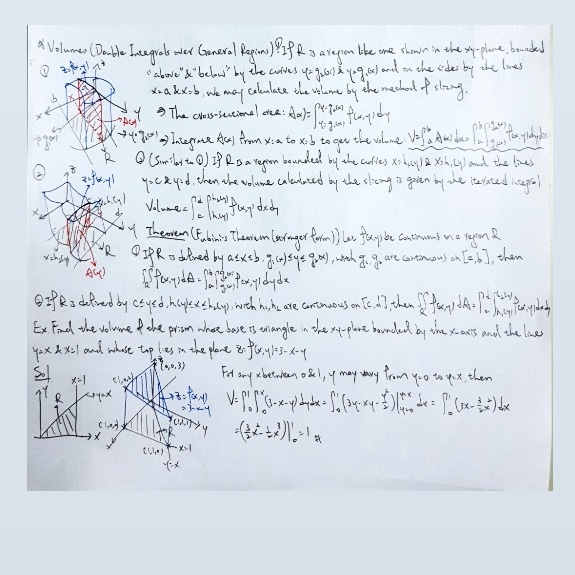 * Volumes (Double Integrals over General Regions) ① If R is a region like one shown in the xy-plane, bounded
① "above" & "below" by the curves y=g₂(x) & y=g₁(x) and on the sides by the lines
x=a & x=b, we may calculate the volume by the method of slicing.
⇒ The cross-sectional area: A(x)=∫_{y=g₁(x)}^{y=g₂(x)} f(x,y)dy
⇒ Integrate A(x) from x=a to x=b to get the volume V=∫ₐᵇ A(x)dx=∫ₐᵇ∫_{g₁(x)}^{g₂(x)} f(x,y)dydx
② (Similar to ①) If R is a region bounded by the curves x=h₂(y) & x=h₁(y) and the lines
② y=c & y=d, then the volume calculated by the slicing is given by the iterated integral
Volume=∫_c^d∫_{h₁(y)}^{h₂(y)} f(x,y)dxdy
Theorem (Fubini's Theorem (stronger form)) Let f(x,y) be continuous on a region R
① If R is defined by a≤x≤b, g₁(x)≤y≤g₂(x), with g₁, g₂ are continuous on [a,b], then
∬_R f(x,y)dA=∫ₐᵇ∫_{g₁(x)}^{g₂(x)} f(x,y)dydx
② If R is defined by c≤y≤d, h₁(y)≤x≤h₂(y), with h₁, h₂ are continuous on [c,d], then ∬_R f(x,y)dA=∫_c^d∫_{h₁(y)}^{h₂(y)} f(x,y)dxdy
Ex Find the volume of the prism whose base is triangle in the xy-plane bounded by the x-axis and the lines
y=x & x=1 and whose top lies in the plane z=f(x,y)=3-x-y
Sol
For any x between 0 & 1, y may vary from y=0 to y=x, then
V=∫₀¹∫₀ˣ(3-x-y)dydx=∫₀¹(3y-xy-y²/2)|_{y=0}^{y=x} dx=∫₀¹(3x-3/2x²)dx
=(3/2x²-1/2x³)|₀¹=1 #
z=f(x,y)
z
x
y
b
A(x)
R
z
z=f(x,y)
x
y
d
R
A(y)
y
x=1
R
y=x
x
z
(0,0,3)
z=f(x,y)
=3-x-y
(1,1,1)
y
(1,0,0)
R
(1,1,0)
x=1
x
y=x